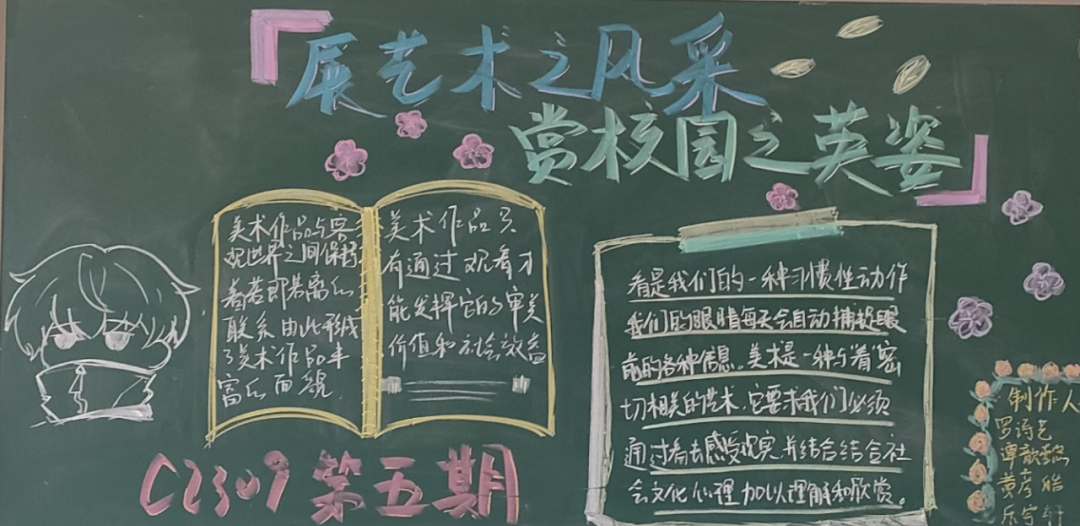 展艺术之风采
赏校园之英姿
美术作品与客
观世界之间保持
着若即若离的
联系由此形成
了美术作品丰
富的面貌
美术作品只
有通过观看才
能发挥它的审美
价值和社会效益
看是我们的一种习惯性动作
我们的眼睛每天会自动捕捉眼
前的各种信息。美术是一种与看密
切相关的艺术,它要求我们必须
通过看去感受观实并结合结合社
会文化心理加以理解和欣赏。
C2309第五期
制作人
罗诗艺
谭歆
黄彦
乐宇轩